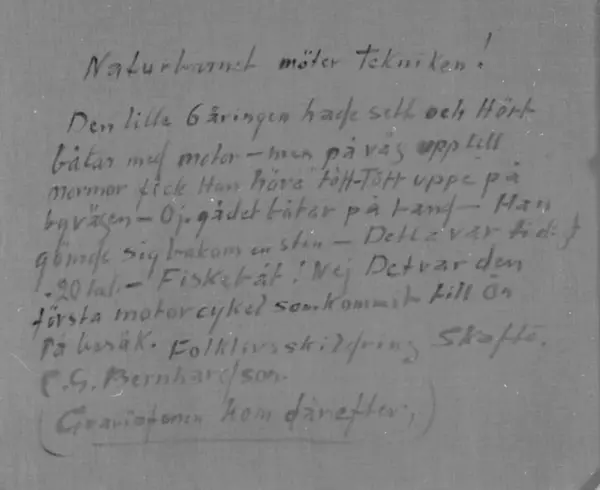 Naturbarnet möter Tekniken!
Den lille 6 åringen hade sett och Hört
båtar med motor - men på väg upp till
mormor fick Han höra "tött-Tött uppe på
byvägen - Oj. gådet båtar på Land - Han
gömde sig bakom en sten - Detta var tidi
.20 tal. - Fiskebåt! Nej Det var den
första motorcykel som kommit till Ön
På besök. Folklivsskildring Skaftö.
C.G. Bernhardson.
( kom därefter, )